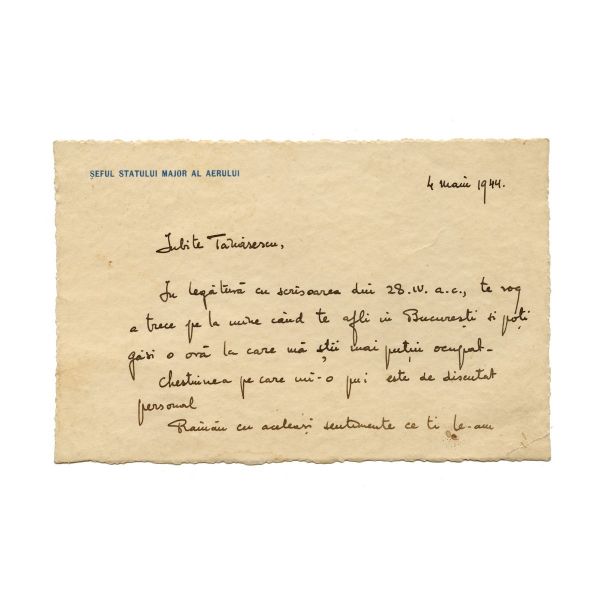 ŞEFUL STATULUI MAJOR AL AERULUI
4 maiu 1944.
Iubite Tanăsescu,
In legătură cu scrisoarea din 28.IV. a.c., te rog
a trece pe la mine când te afli in Bucureşti si poţi
găsi o oră la care mă ştii mai puţin ocupat.
Chestiunea pe care mi-o pui este de discutat
personal
Rămân cu aceleaşi sentimente ce ti le-am